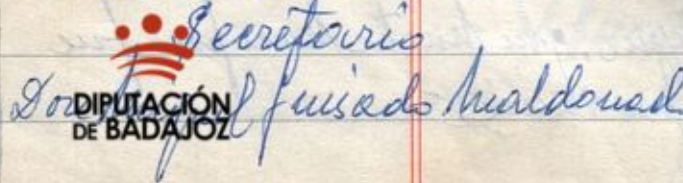 Secretario
Don Guisado Maldonado
DIPUTACIÓN
DE BADAJOZ